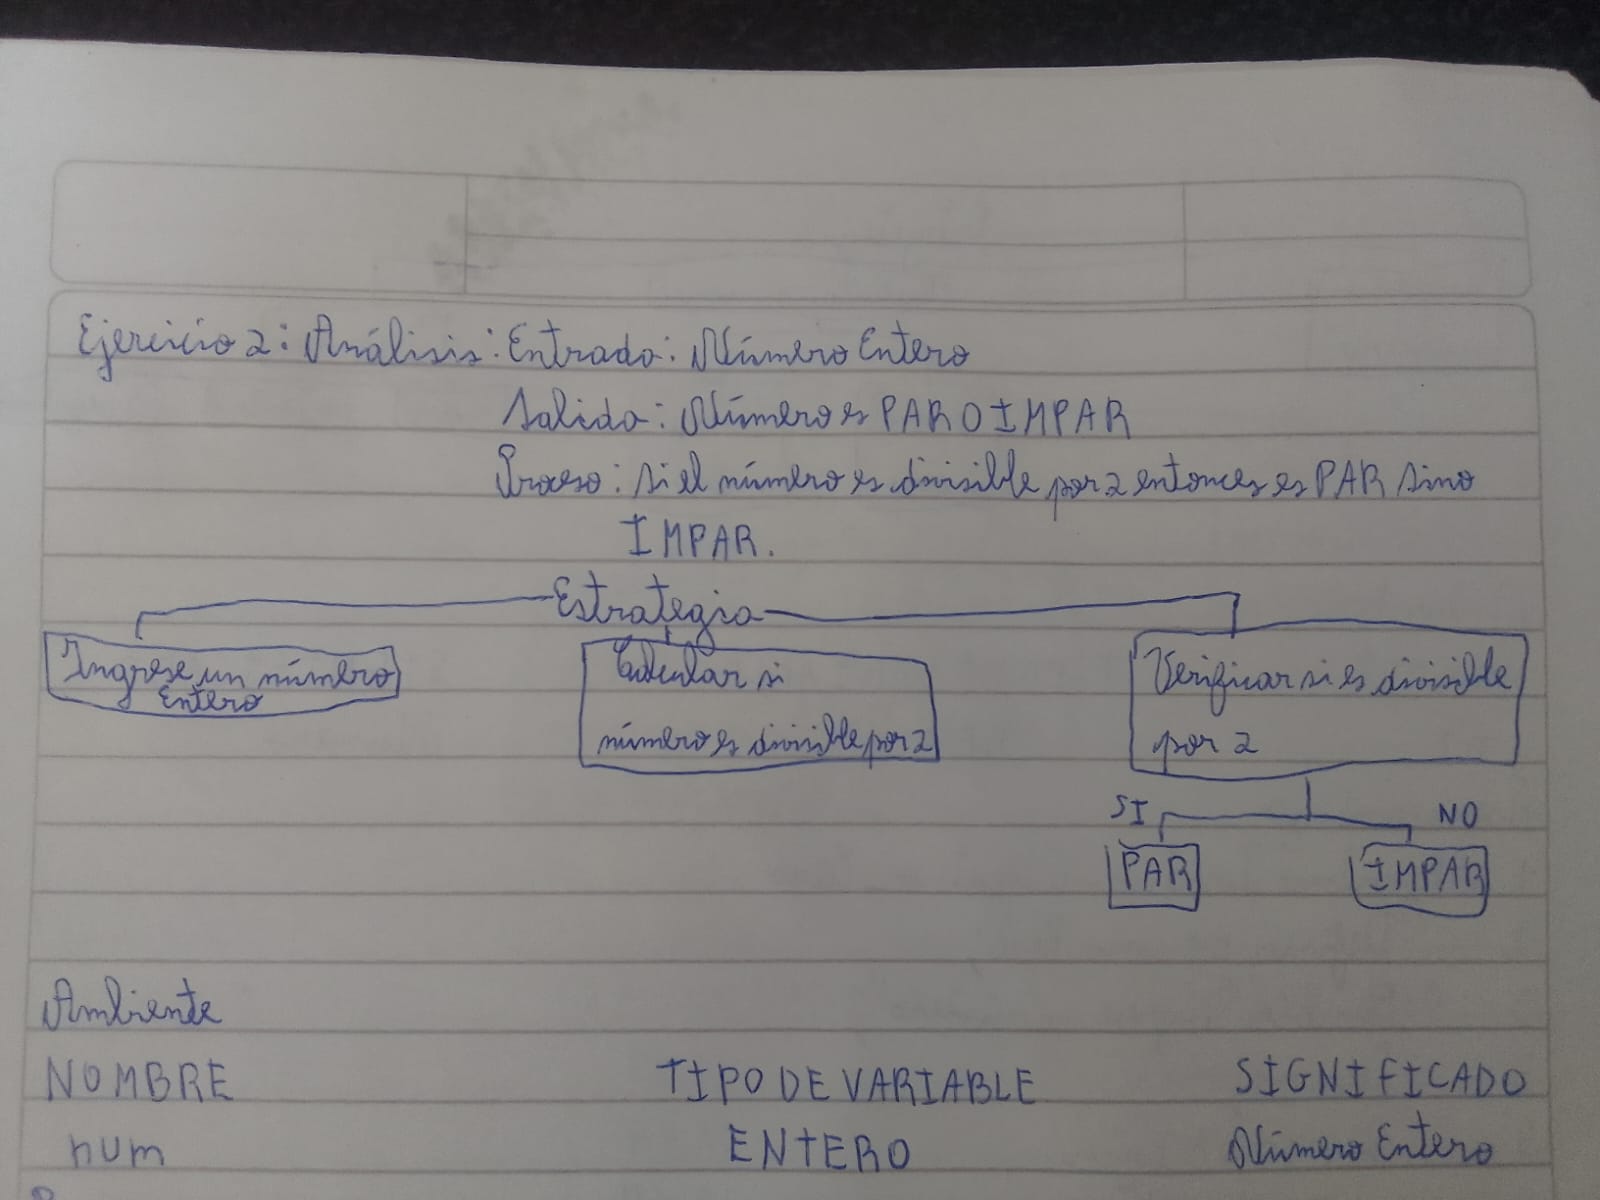 Ejercicio 2: Análisis: Entrada: Número Entero
Salida: Número es PAR O IMPAR
Proceso: si el número es divisible por 2 entonces es PAR sino
IMPAR.
Estrategia
Ingrese un número
Entero
Calcular si
número es divisible por 2
Verificar si es divisible
por 2
SI NO
PAR IMPAR
Ambiente
NOMBRE TIPO DE VARIABLE SIGNIFICADO
num ENTERO Número Entero